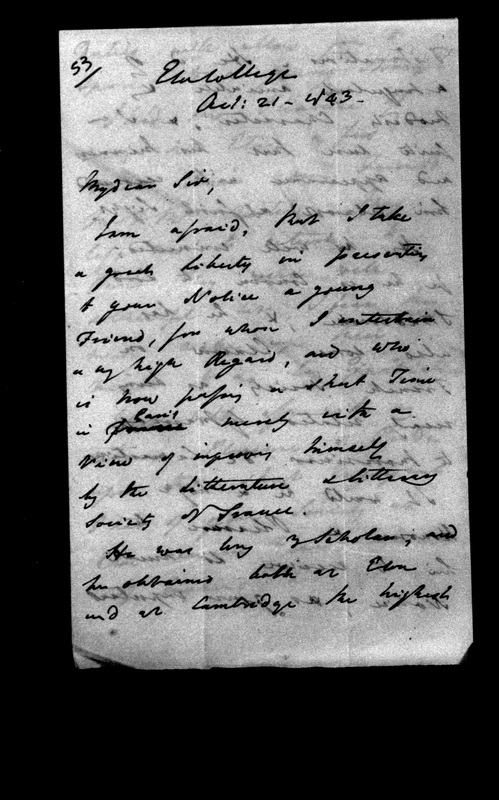 53/
Eton College
Oct: 21 - 1843 -
My dear Sir,
I am afraid, that I take
a great liberty in presenting
to your Notice a young
Friend, for whom I entertain
a high Regard, and who
is now passing a short Time
in Paris merely with a
View of improving himself
by the litterature & literary
Society of France.
He was my Scholar; and
he obtained both at Eton
and at Cambridge the highest